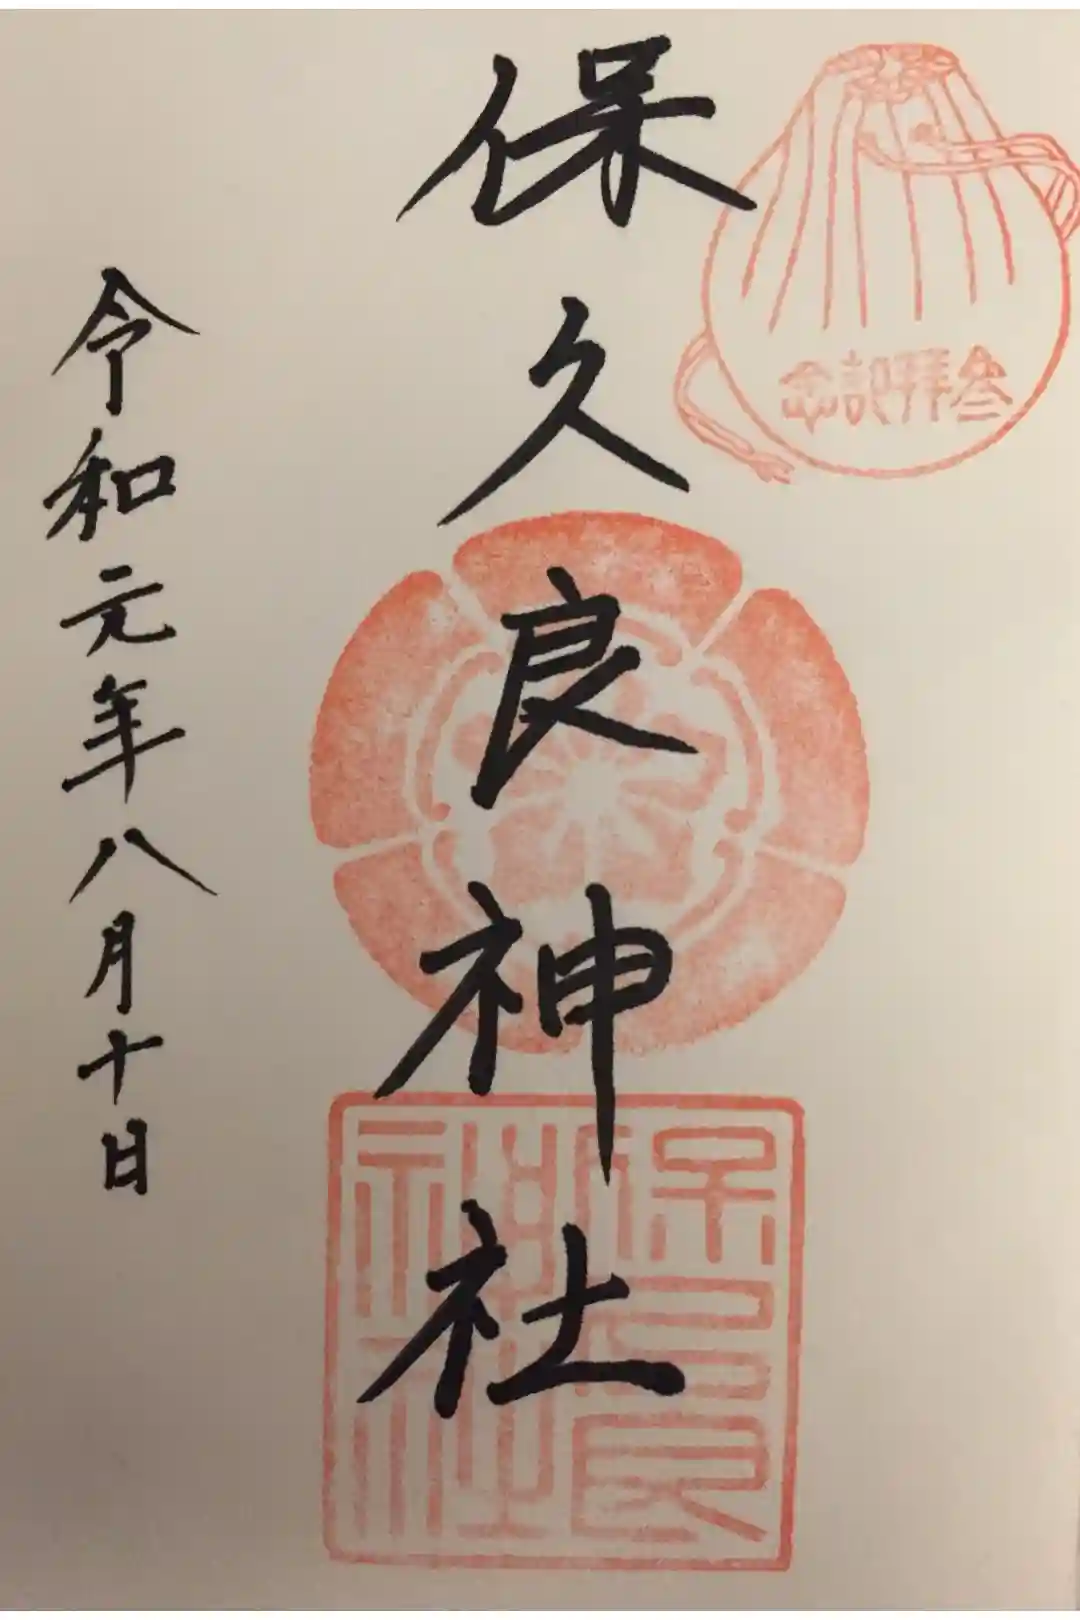 参拜記念
保久良神社
保久良神社
令和元年八月十日